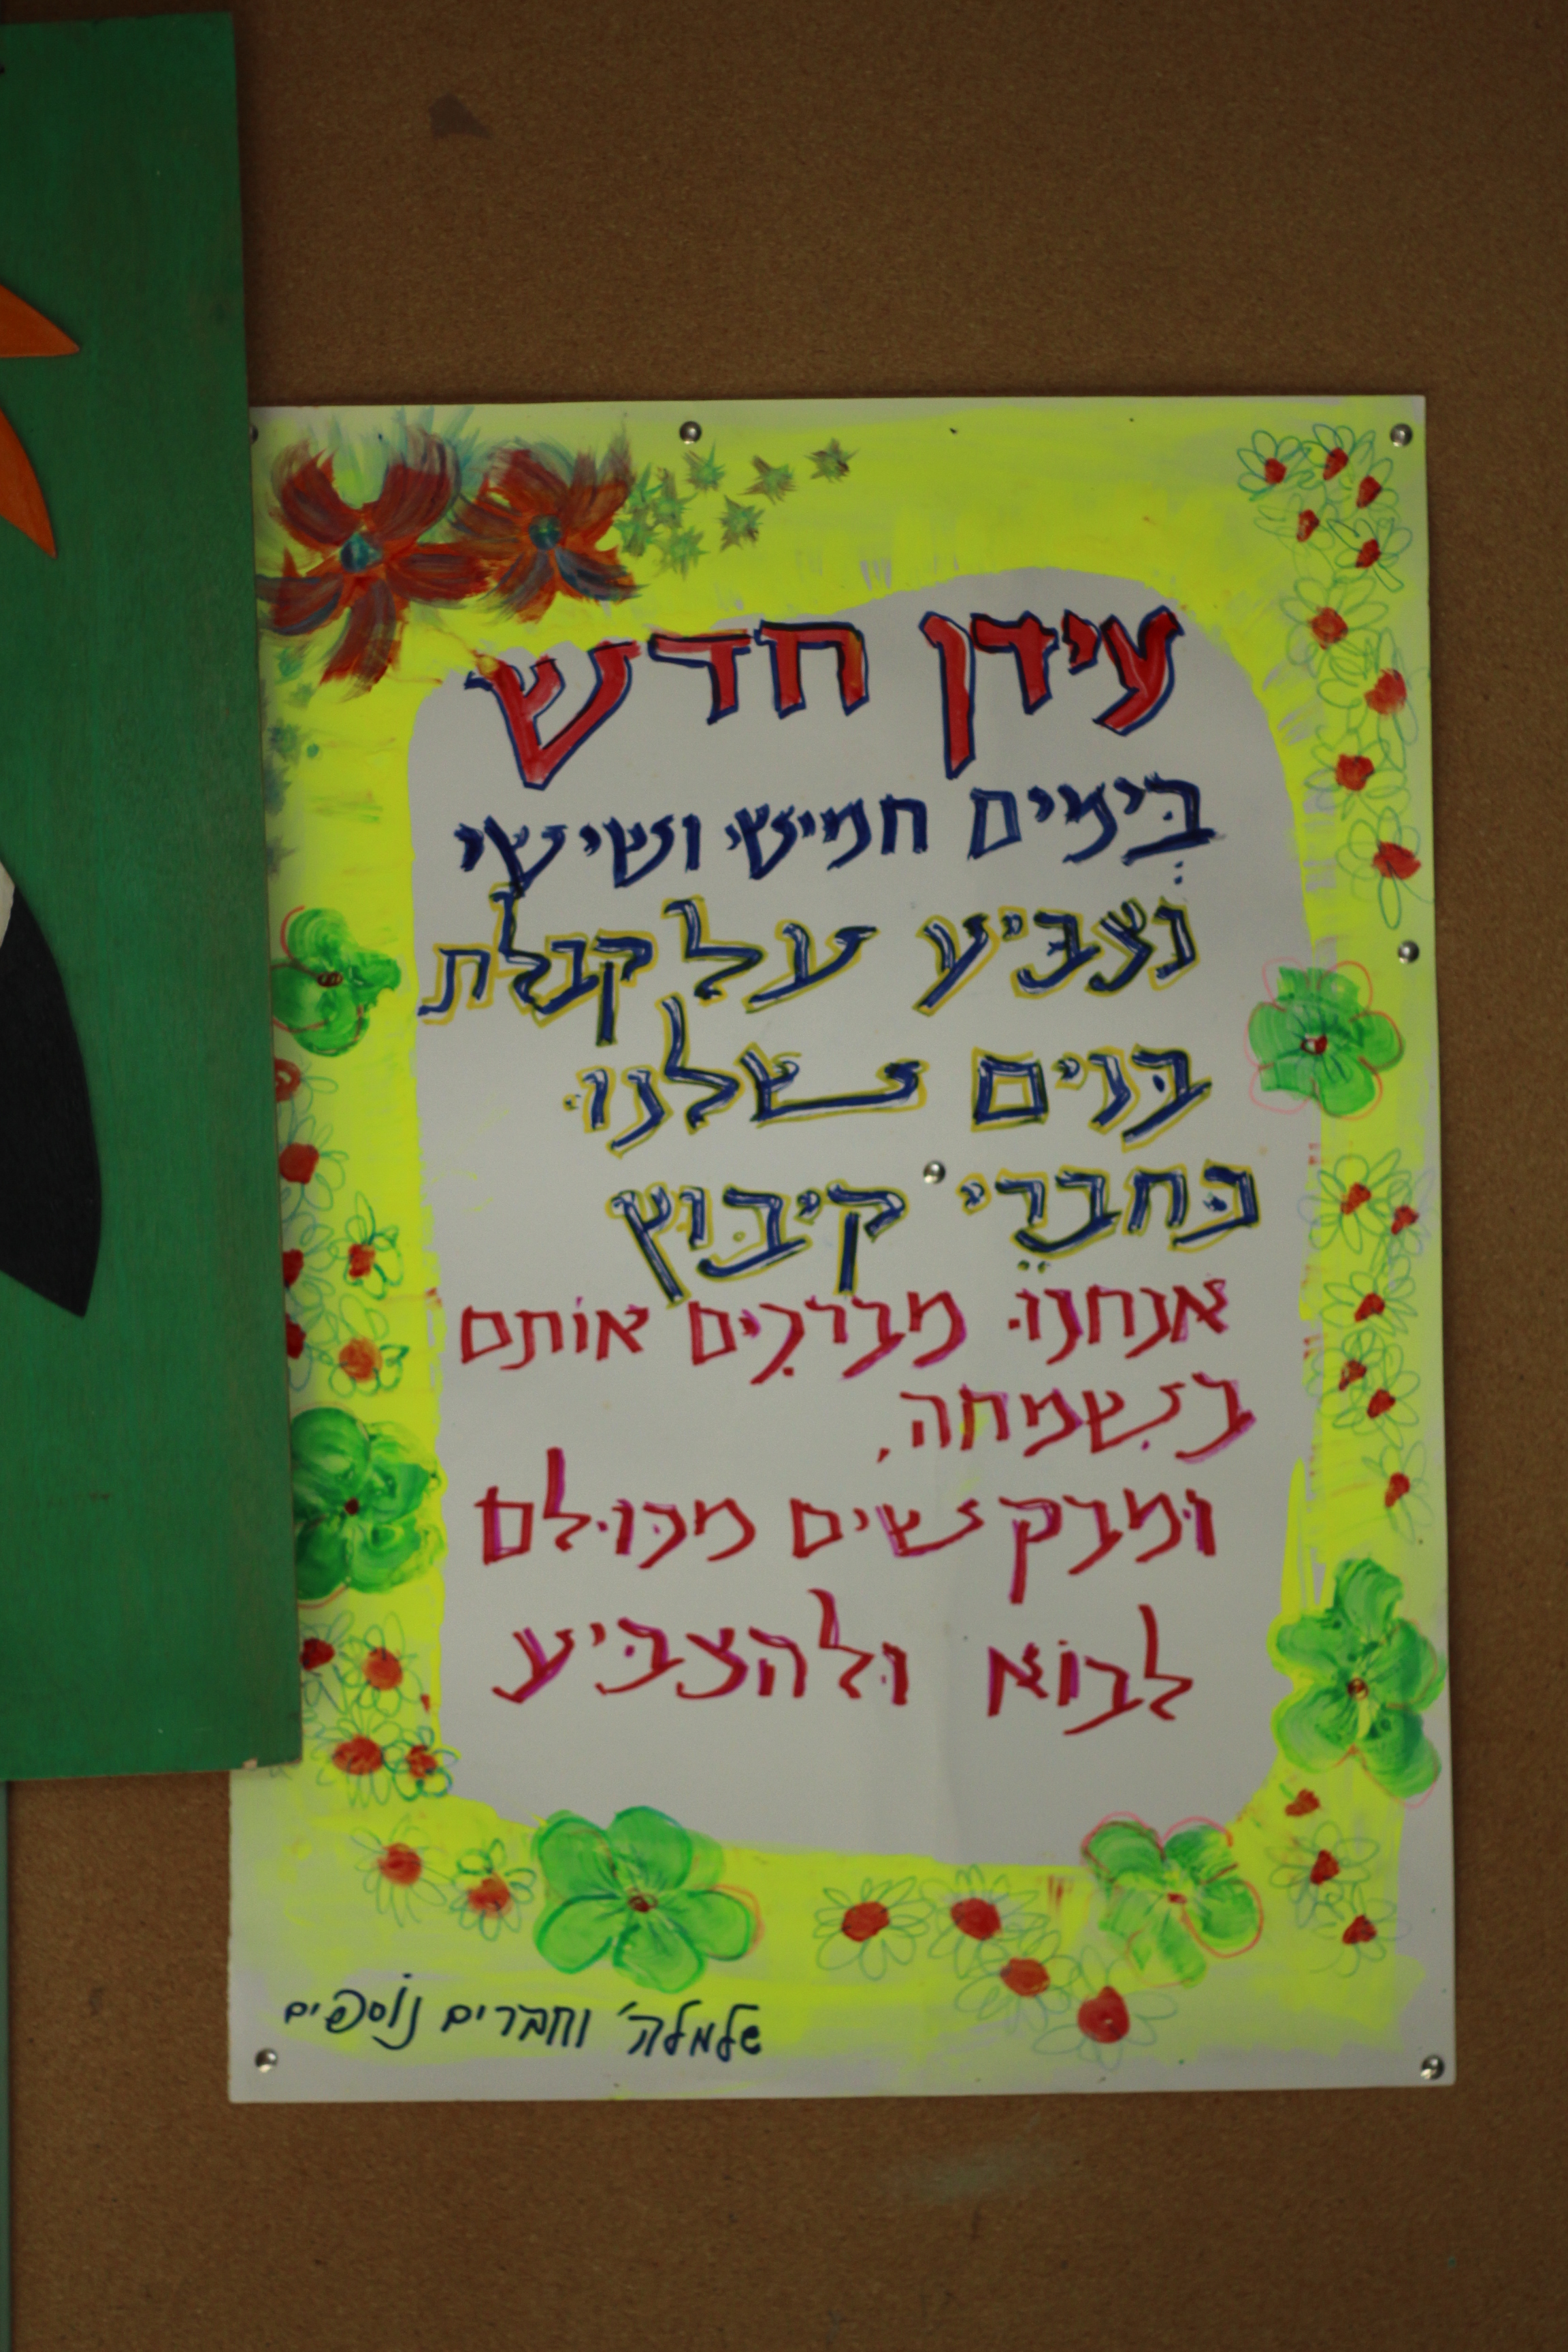 עידן חדש
בימים חמישי ושישי
נצביע על קבלת
בנים שלנו
כחברי קיבוץ
אנחנו מברכים אותם
בשמחה,
ומבקשים מכולם
לבוא ולהצביע
שלמלה' וחברים נוספים